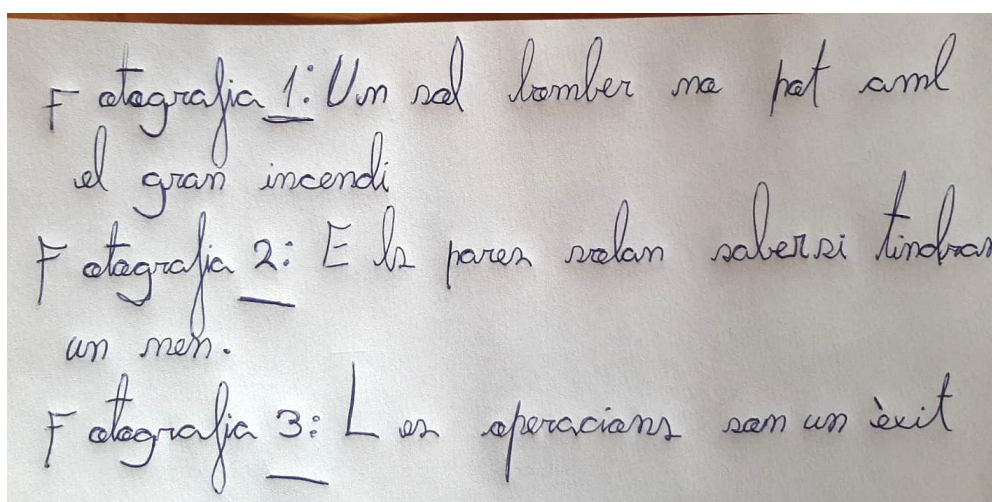 Fotografia 1: Un sol bomber no pot amb
el gran incendi
Fotografia 2: Els pares volan sabersi tindran
un nen.
Fotografia 3: Les operacions son un èxit